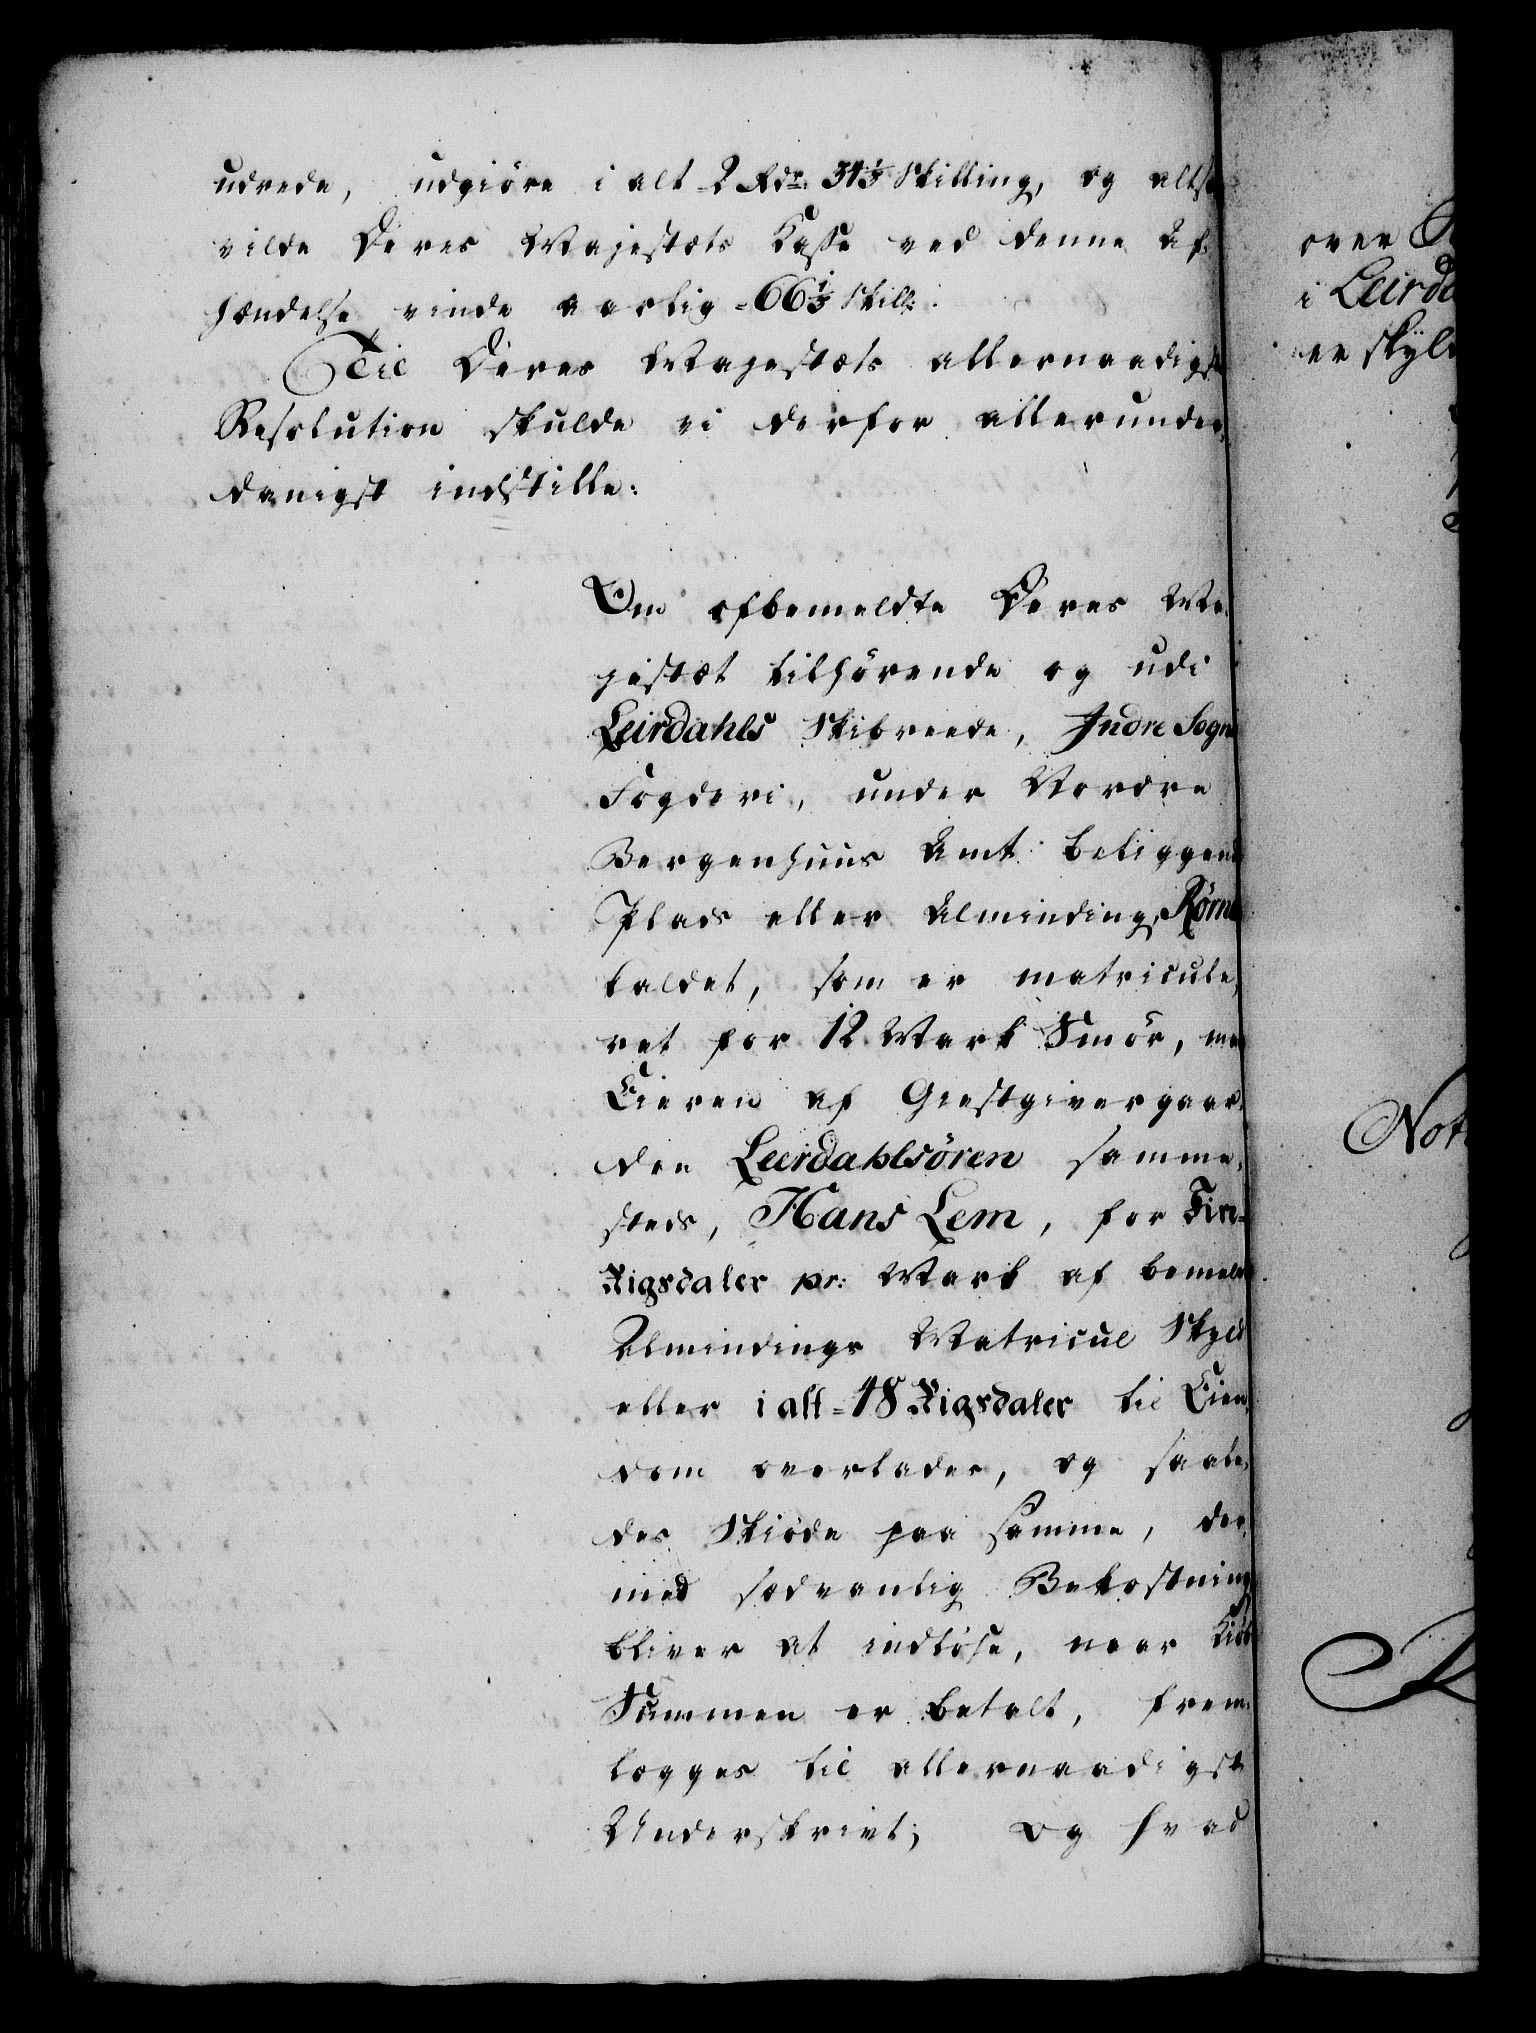 udrede, udgiöre i alt 2 Rdr. 31⅓ Skilling, og altsaa
vilde Deres Majestæts Casse ved denne Af-
hændelse vinde aarlig = 66⅓ Skill:
Til Deres Majestæts allernaadigste
Resolution skulde vi derfor allerunder-
danigst indstille:
Om ofbemeldte Deres Ma-
jestæt tilhörende og udi
Leirdahls Skibreede, Indre Sogns
Fogderi, under Nordre
Bergenhuus Amt beliggende
Plads eller Alminding,
kaldet, som er matricule-
ret for 12 Mark Smör, maa
Eieren af Giestgivergaar-
den Leerdahlsören samme-
steds, Hans Lem, for Fire
Rigsdaler pr: Mark af bemeldte
Almindings Matricul Skyld
eller i alt = 48 Rigsdaler til Eien-
dom overlades, og saale-
des Skiöde paa samme, der
med sædvanlig Bekostning
bliver at indlöse, naar Kiöbe
Summen er betalt, frem-
lægges til allernaadigst
Underskrivt; og hvad
over
i Leirda
er skyld
Not